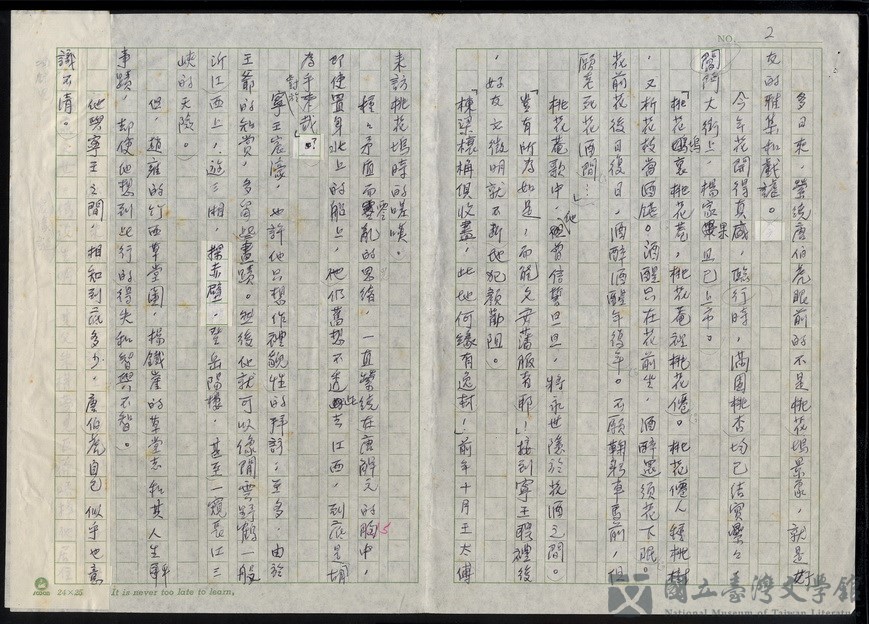 NO. 2
多日來，縈繞唐伯虎眼前的不是桃花塢景象，就是好
友的雅集和戲謔。
今年花開得真盛，臨行時，滿園桃杏均已結實纍纍；
閶門大街上，楊家果且已上市。
「桃花塢裏桃花菴，桃花菴裡桃花僊。桃花僊人種桃樹
，又折花枝當酒錢。酒醒只在花前坐，酒醉還須花下眠。
花前花後日復日，酒醉酒醒年復年。不願鞠躬車馬前，但
願老死花酒間…」
桃花菴歌中，他曾信誓旦旦，將永世隱於花酒之間。
「豈有所為如是，而能久安藩服者耶！」接到寧王聘禮後
，好友文徵明就不斷地犯顏勸阻。
「棟梁榱桷俱收盡，此地何緣有逸材！」前年十月王太傅
來訪桃花塢時的嗟嘆。
種々矛盾而零亂的思緒，一直縈繞在唐解元的胸中，
即使置身北上的船上，他仍舊想不透此去江西，到底是胡
為乎來哉？
對於寧王宸濠，也許他只想作禮貌性的拜訪；至多，由於
王爺的知賞，多留些畫蹟。然後他就可以像閒雲野鶴一般
沂江西上，遊三湘，探赤壁，登岳陽樓，甚至一窺長江三
峽的天險。
但，趙雍的竹西草堂圖，楊鐵崖的草堂志和其人生
事蹟，却使他想到此行的得失和智與不智。
他與寧王之間，相知到底多少，唐伯虎自己似乎也意
識不清。
24×25 It is never too late to learn.
國立臺灣文學館
National Museum of Taiwan Literature